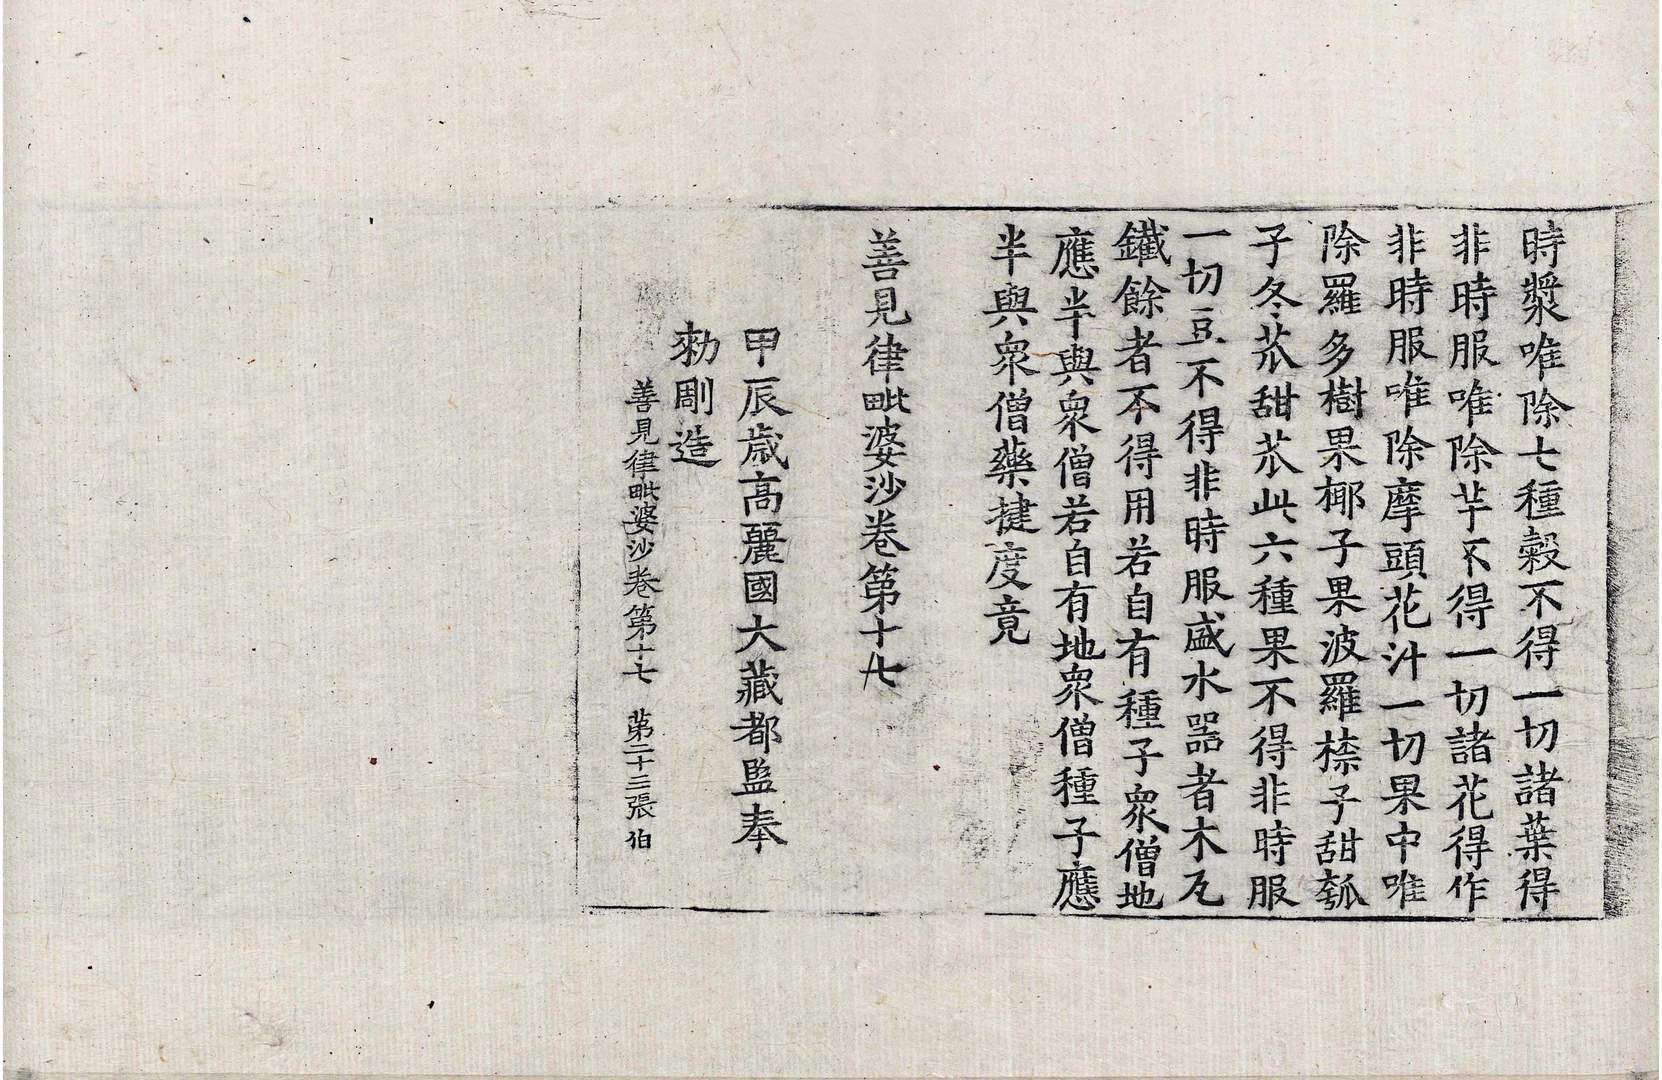 時漿唯除七種穀不得一切諸葉得
非時服唯除芋不得一切諸花得作
非時服唯除摩頭花汁一切果中唯
除羅多樹果椰子果波羅㮈子甜瓠
子冬苽甜苽此六種果不得非時服
一切豆不得非時服盛水器者木瓦
鐵餘者不得用若自有種子衆僧地
應半與衆僧若自有地衆僧種子應
半與衆僧藥揵度竟
善見律毗婆沙卷第十七
甲辰歲高麗國大藏都監奉
勅彫造
善見律毗婆沙卷第十七 第二十三張 伯